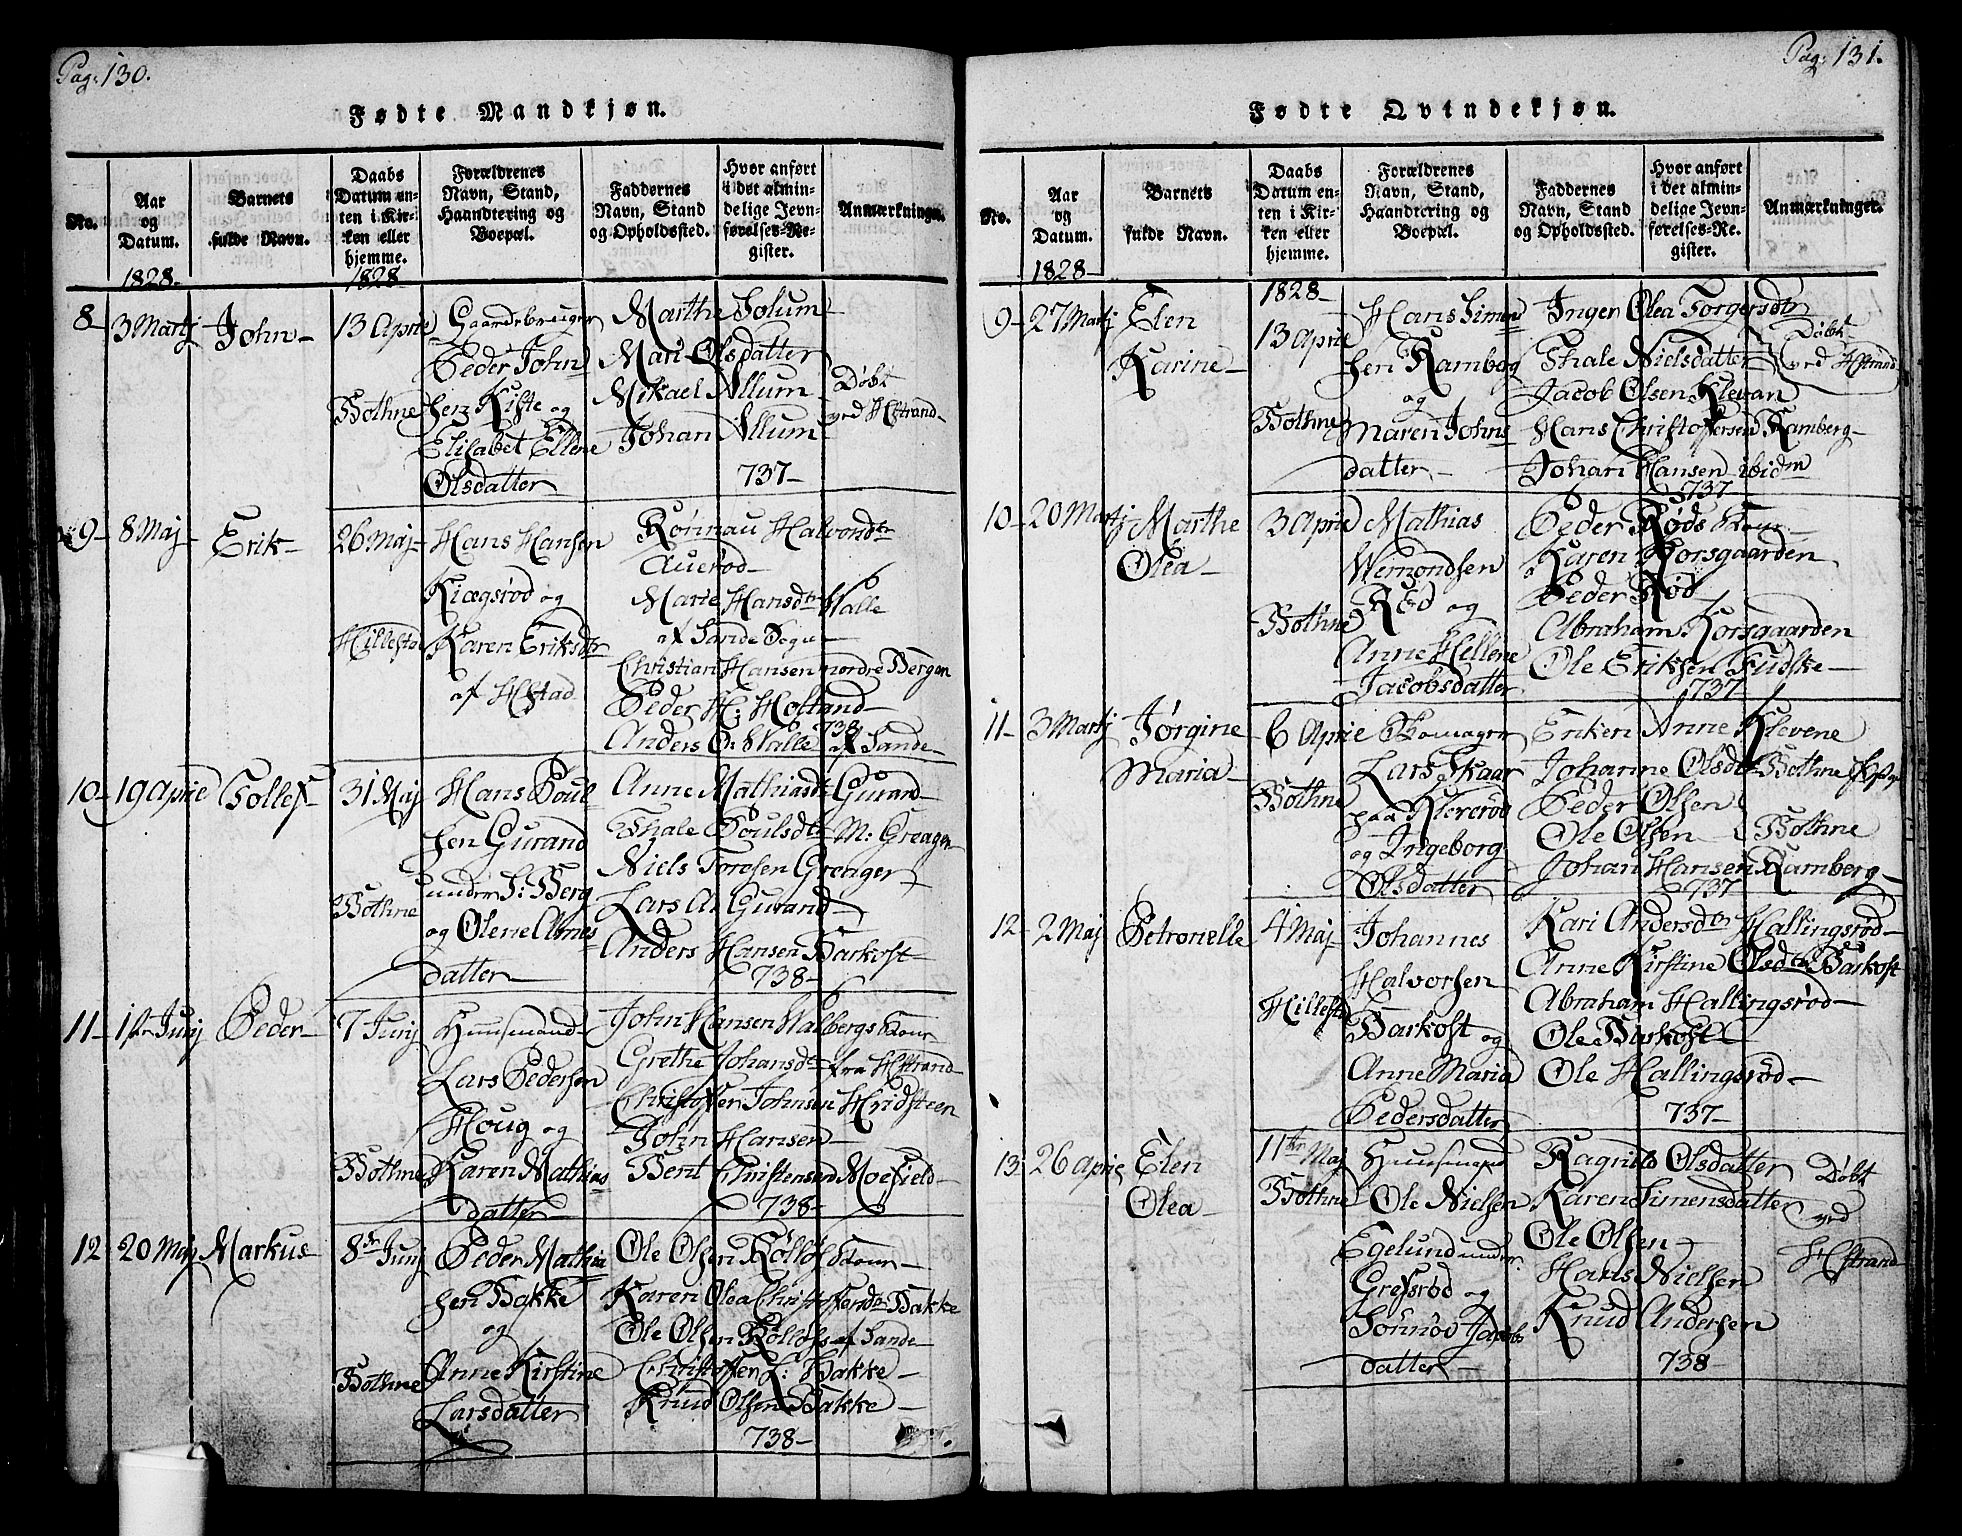 Pag: 130.
Fødte Mandkjøn.
No.
Aar og Datum.
1828-
Barnets fulde Navn.
Daabs Datum enten i Kirken eller hjemme.
1828
Forældrenes Navn, Stand, Haandtering og Boepæl.
Faddernes Navn, Stand og Opholdssted.
Hvor anført i det almindelige Jevnførelses-Register.
Anmærkninger.
8- 3 Martj John-
13 April
Bothne
Gaardebruuger
Peder John
sen Kiste og
Elisabet Ellene
Olsdatter
Marthe Solum
Mari Olsdatter
Mikael Allum
Johan Allum
737-
Døbt
ved Hstrand-
9- 8 Maj- Erik-
26 Maj-
Hillestad
Hans Hansen
og
Karen Eriksdtr
af Hstad
Rønnau Halvorsdtr
Auerød-
Marie Hansdtr Valle
af Sande Sogn-
Christian Hansen nordre Bergan
Peder H: Holtand-
738
Anders O: Valle af Sande-
10- 19 April Tollef
31 Maj
Bothne
Hans Poul
sen Gurand
under S: Berg
og Olene Abra
datter-
Anne Mathiasdtr Gurand-
Thale Poulsdtr M: Greagen
Niels Toresen Greager
Lars A: Gurand-
Anders Hansen Barkost-
738-
11- 1ste Junj Peder-
7 Junj
Bothne
Huusmand-
Lars Pedersen
Houg og
Karen Mathias
datter-
John Hansen Walbergs Kone
Grethe Johansdtr fra Hstrand-
Christoffer Johnsen Hvidsteen
John Hansen-
Bent Christensen Moefield-
738-
12 20 Maj Markus
8de Junj
Bothne
Peder Mathia
sen Bakke
og
Anne Kirstine
Larsdatter
Ole Olsen Kone-
Karen Olea Christoffersdtr Bakke
Ole Olsen af Sande-
Christoffer L: Bakke-
Knud Olsen Bakke-
738-
Pag: 131.
Fødte Qvindekjøn.
No.
Aar og Datum.
1828-
Barnets fulde Navn.
Daabs Datum enten i Kirken eller hjemme.
1828-
Forældrenes Navn, Stand, Haandtering og Boepæl.
Faddernes Navn, Stand og Opholdssted.
Hvor anført i det almindelige Jevnførelses-Register.
Anmærkninger.
9- 27 Martj Elen
Karine-
13 April
Bothne
Hans Simon
sen Ramberg
og
Maren Johns
datter-
Inger Olea Torgersdtr
Thale Nielsdatter
Jacob Olsen Klevan
Hans Christophersen Ramberg-
Johan Hansen ibidm
737-
Døbt
ved Hstrand
10- 20 Martj Marthe
Olea-
3 April
Bothne
Mathias
Wemondsen
Rød og
Anne Hellene
Jacobsdatter
Peder Røds Kone-
Karen Korsgaarden
Peder Rød
Abraham Korsgaarden
Ole Eriksen
737-
11- 3 Martj Jørgine
Maria-
6 April
Bothne
Lars Skaar
paa Klererød
og Ingeborg
Olsdatter
Enken Anne Klevene
Johanne Olsdtr Bothne
Peder Olsen
Ole Olsen- Bothne
Johan Hansen Ramberg-
737
12- 2 Maj Petronelle
4 Maj-
Hillestad
Johannes
Halvorsen
Barkost og
Anne Maria
Pedersdatter
Kari Andersdtr Hallingsrød-
Anne Kirstine Olsdtr Barkost
Abraham Hallingsrød-
Ole Barkost
Ole Hallingsrød-
737-
13 26 April Elen
Olea-
11te Maj
Bothne
Huusmand
Ole Nielsen
Egelund under
Grefsrød og
Jacobs
datter-
Ragnild Olsdatter
Karen Simensdatter
Ole Olsen
Hans Nielsen
Knud Andersen
738-
Døbt
ved
Hstrand